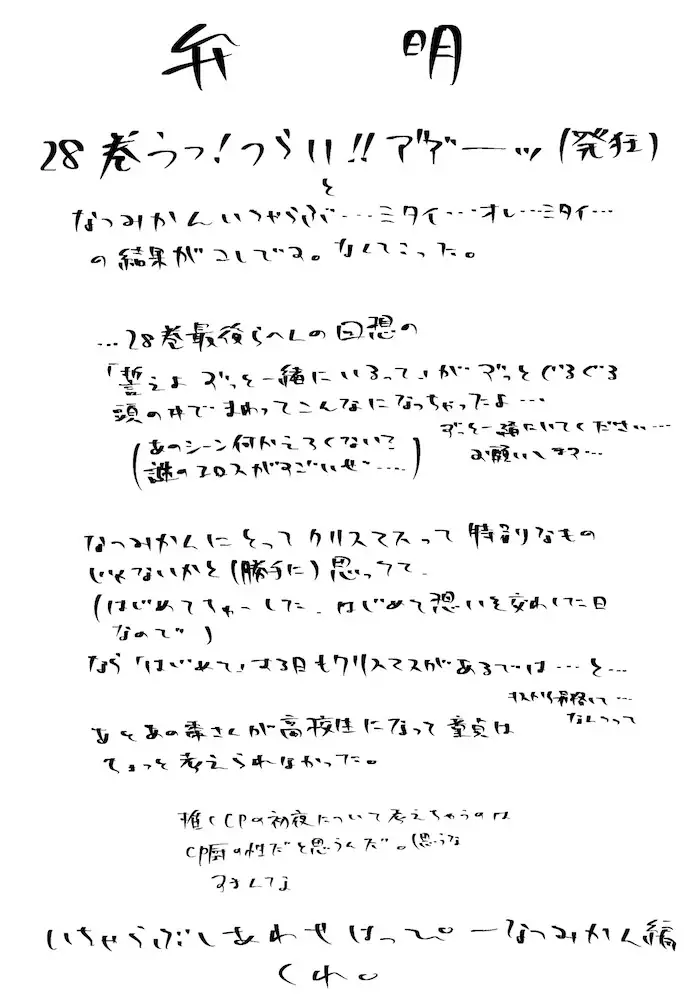 弁明
28巻うっ!つらい!!アアーーッ(発狂)
と
なつみかんいちゃらぶ…ミタイ…オレ…ミタイ…
の結果がコレです。なんてこった。
…28巻最後らへんの回想の
「誓えよ ずっと一緒にいるって」がずっとぐるぐる
頭の中でまわってこんなになっちゃったよ…
(あのシーン何かえろくない?
謎のエロスがすごいぜ……)
ずっと一緒にいてください…
お願いします…
なつみかんにとってクリスマスって特別なもの
じゃないかと(勝手に)思ってて、
(はじめてちゅーした、はじめて想いを交わした日
なので)
なら「はじめて」する日もクリスマスがあるでは…と…
なんつって
あとあの棗さんが高校生になって童貞は
ちょっと考えられなかった。
推しCPの初夜について考えちゃうのは
CP厨の性だと思うんだ。(思うな
すまんてな
いちゃらぶしあわせはっぴーなつみかん編
くれ。